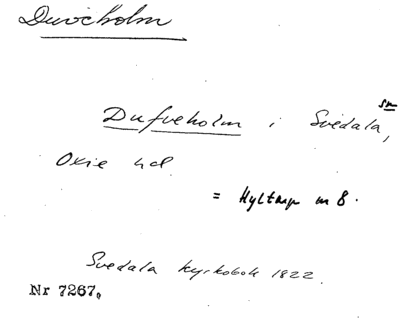 Duveholm
Dufveholm i Svedala sn,
Oxie hd.
= Hyltarp nr 8.
Svedala kyrkobok 1822.
Nr 7267.